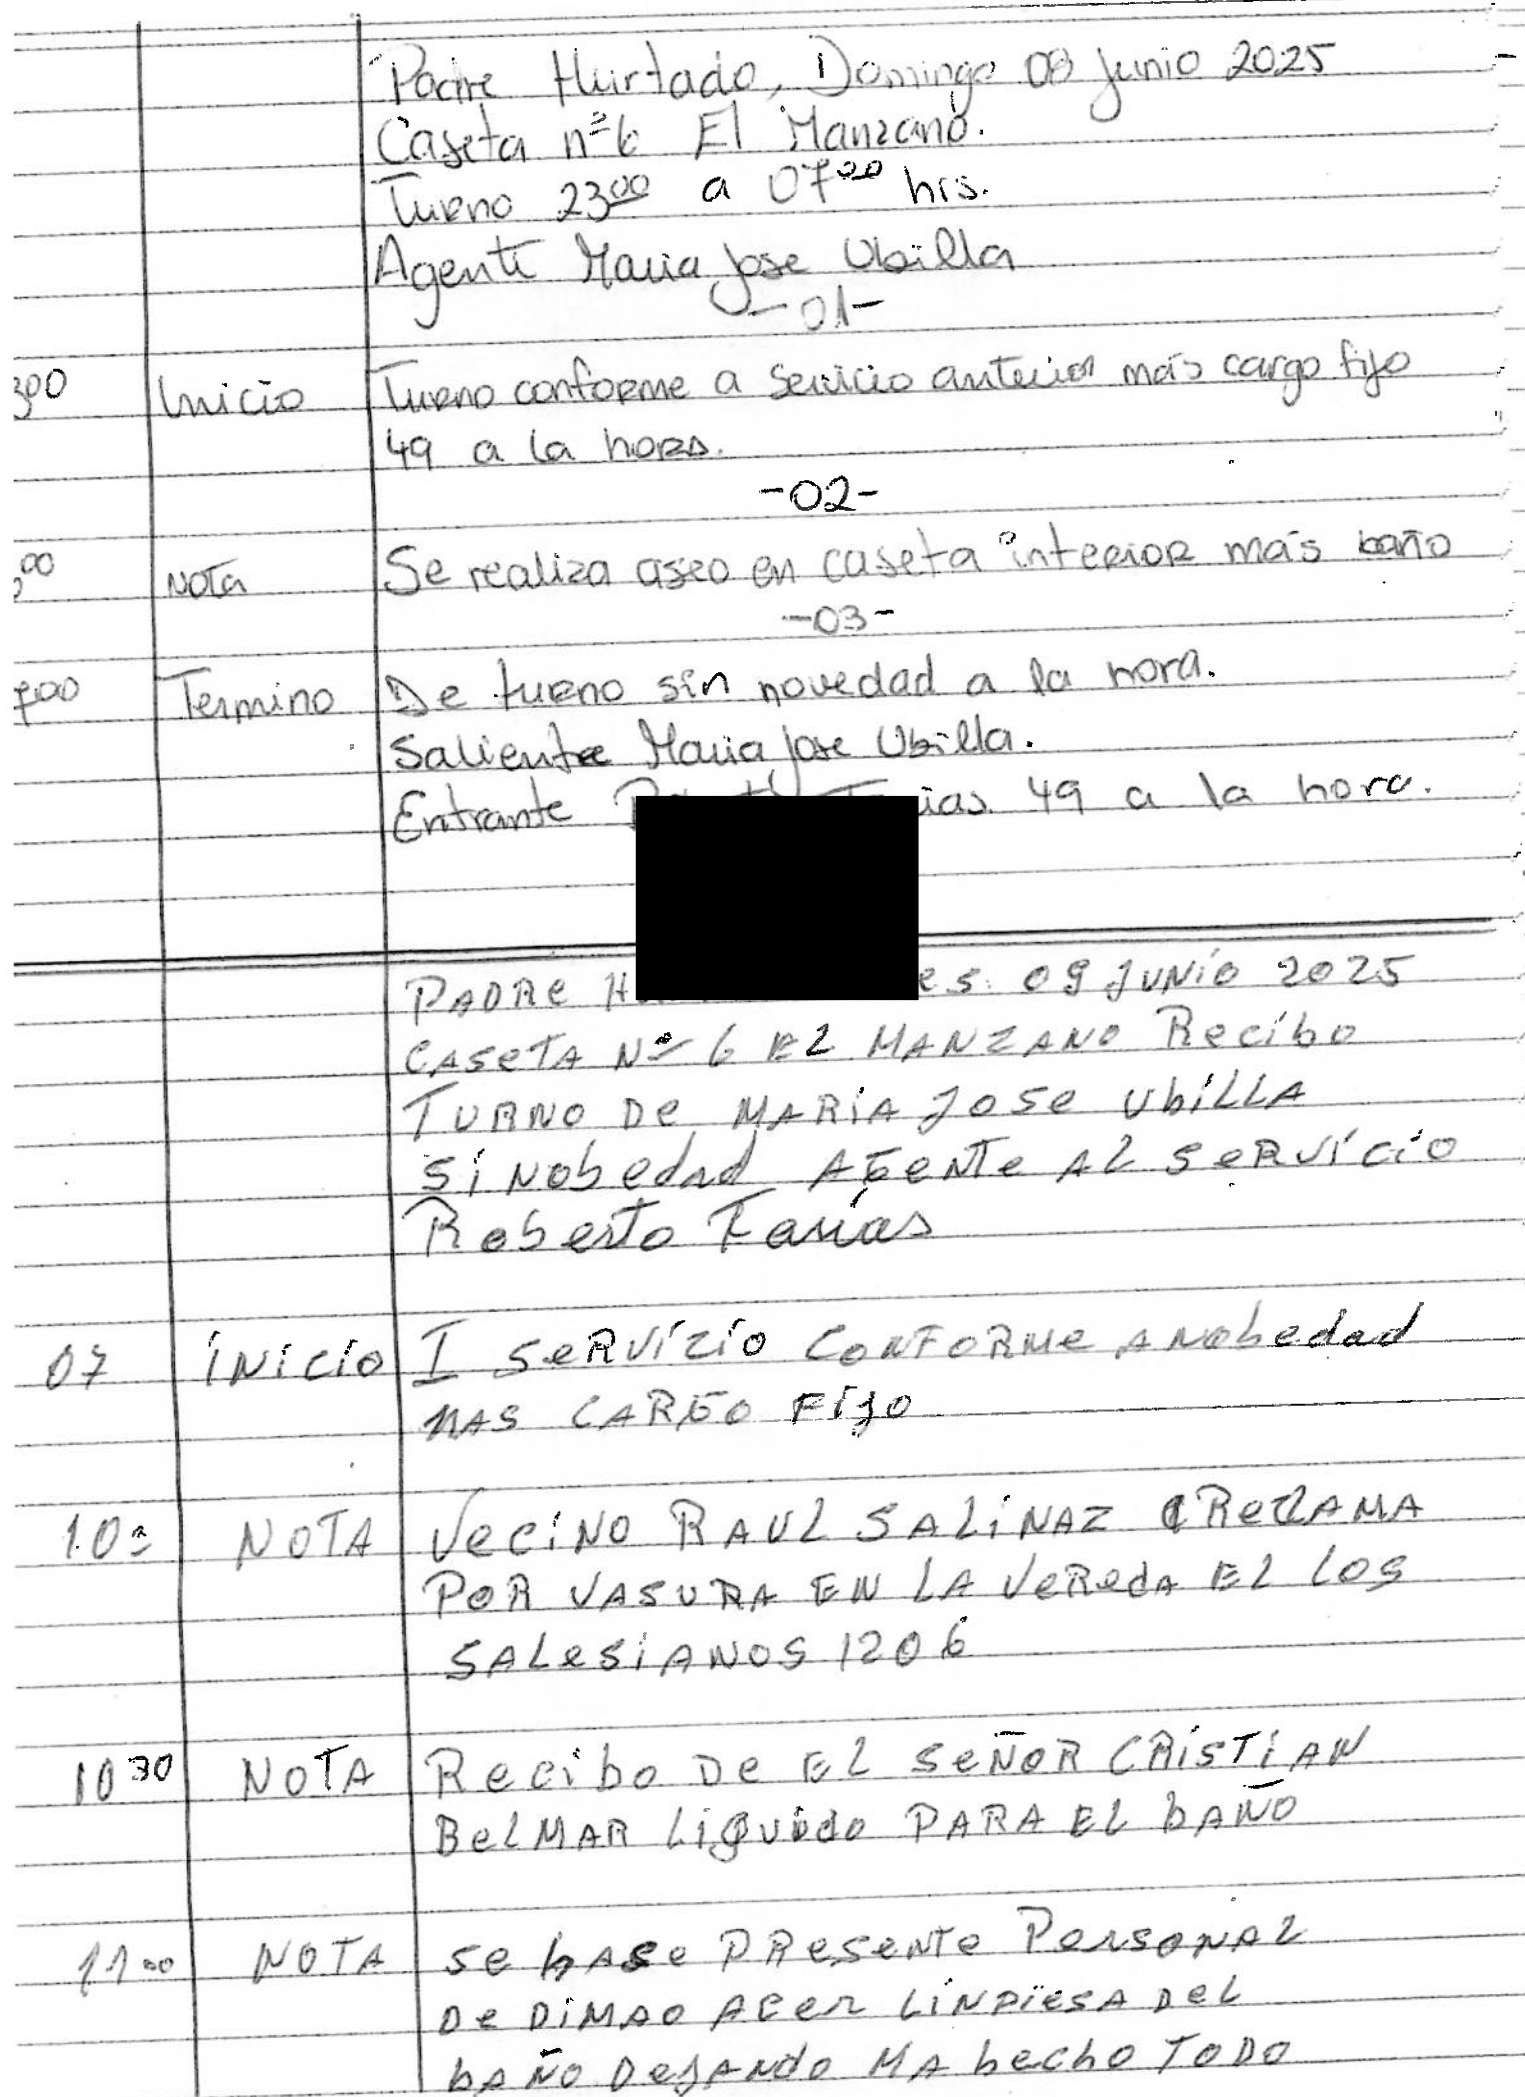 Padre Hurtado, Domingo 08 Junio 2025
Caseta nº6 El Manzano.
Turno 2300 a 0700 hrs.
Agente Maria Jose Ubilla
-01-
300 Inicio Turno conforme a servicio anterior más cargo fijo
49 a la hora.
-02-
00 Nota Se realiza aseo en caseta interior más baño
-03-
700 Termino De turno sin novedad a la hora.
Saliente Maria Jose Ubilla.
Entrante 49 a la hora.
PADRE es 09 JUNIO 2025
CASETA Nº 6 EL MANZANO Recibo
TURNO De MARIA JOSe UbiLLA
Si Nobedad AGENTe AL SeRViCiO
Roberto Farias
07 iNiCiO I SeRViZiO CONFORMe A Nobedad
MAS CARGO FiJO
10= NOTA VeCiNO RAUL SALiNAZ ReCLAMA
POR VASURA EN LA VeRedA EL LOS
SALeSiANOS 1206
1030 NOTA Recibo De EL SeÑOR CRiSTiAN
BeLMAR LiQuido PARA EL bAÑO
1100 NOTA Se hASe PReSeNTe PeRSONAL
De DiMAO ACer LiNPiESA DeL
bAÑO DeJANdo MA hecho TODO